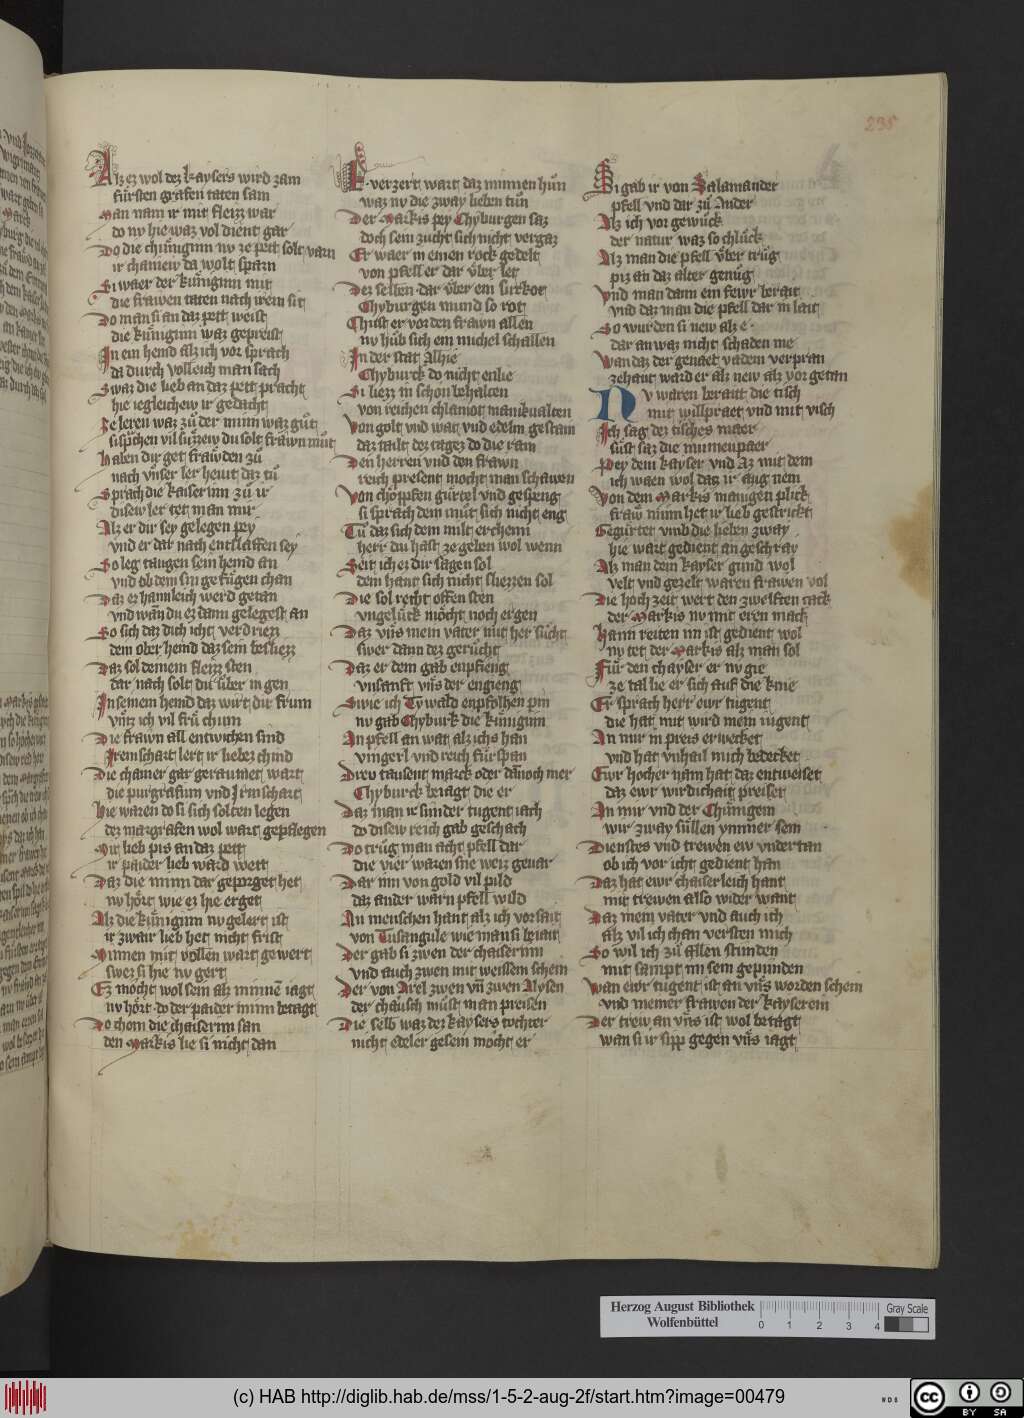 235
Alz ez wol dez kaysers wird zam
fürsten grafen taten sam
Man nam ir mit fleizz war
do nv hie waz vol dient gar
Do die chüniginn nv ze pett solt varn
ir chamew da wolt sparn
Si waer der küniginn mit
die frawen taten nach irem sit
Do man si an daz pett weist
die küniginn waz gepreist
In ein hemd alz ich vor sprach
da durch volleich man sach
Swaz die lieb an daz pett pracht
hie iegleichew ir gedacht
Ze leren waz zů der minn waz gůt
si sprechen vil süzzew du solt frawn můt
Haben dir get frawden zů
nach vnser ler heint daz tů
Sprach die kaiserinn zů ir
disew ler tet man mir
Alz er dir sey gelegen pey
vnd er dar nach entslaffen sey
So leg taugen sein hemd an
vnd ob dem sin gefügen chan
Daz er hannleich werd getan
vnd wan du ez dann gelegest an
So sich daz dich icht verdriezz
dem ober hemd daz sein besliezz
Daz sol deinem fleizz sten
dar nach solt du süber in gen
In seinem hemd daz wirt dir frum
vntz ich vil frů chum
Die frawn all entwichen sind
Irmschart lert ir liebez chind
Die chamer gar geraumet wart
die purgrafinn vnd Irmschart
Hie waren do si sich solten legen
dez margrafen wol wart gepflegen
Mit lieb pis an daz pett
ir paider lieb ward wett
Daz die minn dar geporget het
nv hört wie ez hie erget
Alz die küniginn nv gelert ist
ir zwair lieb het nicht frist
Minnen mit vollen wart gewert
swez si hie nv gert
Ez mocht wol sein alz minne iagt
nv hört do der paider minn betagt
Do chom die chaiserinn san
den Markis lie si nicht dan
E verzert wart daz minnen hůn
waz nv die zway lieben tůn
Der Markis pey Chyburgen saz
doch sein zucht sich nicht vergaz
Er waer in einen rock gedelt
von pfell er dar vber let
Dez selben dar vber ein surkot
Chyburgen mund so rot
Chust er vor den frawn allen
nv hůb sich ein michel schallen
In der stat Alhie
Chyburck do nicht enlie
Si liezz in schon behalten
von reichen chlainot manikualten
Von golt vnd wat vnd edelm gestain
daz tailt dez tagez do die rain
Den herren vnd den frawn
reich present mocht man schawen
Von chöpffen gürtel vnd gespeng
si sprach dem můt sich nicht eng
Tů daz sich dein milt erchenn
herr du hast ze geben wol wenn
Seit ich ez dir sagen sol
dein hant sich nicht sliezzen sol
Die sol recht offen sten
vngelück möcht noch ergen
Daz vns mein vater mit her sücht
swer dann dez gerücht
Daz er dein gab enpfieng
vnsanft vns der engieng
Swie ich Tywald enpfolhen pin
nv gab Chyburk die küniginn
An pfell an wat alz ichs han
vingerl vnd reich fürspan
Drew tausent marck oder dannoch mer
Chyburck betagt die er
Daz man ir sunder tugent iach
do disew reich gab geschach
Do trůg man acht pfell dar
die vier waren sne weiz gevar
Dar inn von gold vil pild
daz ander warn pfell wild
An menschen hant alz ich vor sait
von Tusangule wie man si berait
Der gab si zwen der chaiserinn
vnd auch zwen mit weissem schein
Der von Arel zwen vnd zwen Alysen
der cháusch můst man preisen
Die selb waz dez kaysers tochter
nicht edeler gesein mocht er
Si gab ir von Salamander
pfell vnd dar zů Ander
Alz ich vor gewůck
der natur waz so chlůck
Alz man die pfell vber trůg
piz an daz alter genůg
Vnd man dann ein fewr berait
vnd daz man die pfell dar in lait
So wurden si new alz e
dar an waz nicht schaden me
Wan daz der genaet vadem verpran
zehant ward er alz new alz vor getan
Nv waren berait die tisch
mit willpraet vnd mit visch
Ich sag dez tisches maer
sůst saz die minnenpaer
Pey dem kayser vnd Az mit dem
ich waen wol daz ir aug nem
Von dem Markis manigen plick
fraw minn het ir lieb gestrickt
Gegürtet vmb die lieben zway
hie wart gedient an geschray
Alz man dem kayser gund wol
velt vnd gezelt waren frawen vol
Die hoch zeit wert den zwelften tack
der Markis nv mit eren mack
Hann reiten im ist gedient wol
nv tet der Markis alz man sol
Für den chayser er nv gie
ze tal lie er sich auf die knie
Er sprach herr ewr tugent
die hat mit wird mein iugent
An mir in preis erwecket
vnd hat vnhail mich bedecket
Ewr hocher nam hat daz entweiset
daz ewr wirdichait preiset
An mir vnd der Chünigein
wir zway süllen ymmer sein
Dienstes vnd trewen ew vndertan
ob ich vor icht gedient han
Daz hat ewr chaiserleich hant
mit trewen allso wider want
Daz mein vater vnd auch ich
alz vil ich chan versten mich
So wil ich zů allen stunden
mit sampt im sein gepunden
Wan ewr tugent ist an vns worden schein
vnd meiner frawen der kayserein
Der trew an vns ist wol betagt
wan si ir sipp gegen vns iagt
Herzog August Bibliothek
Wolfenbüttel
0 1 2 3 4
Gray Scale
(c) HAB http://diglib.hab.de/mss/1-5-2-aug-2f/start.htm?image=00479
WDB
cc BY SA